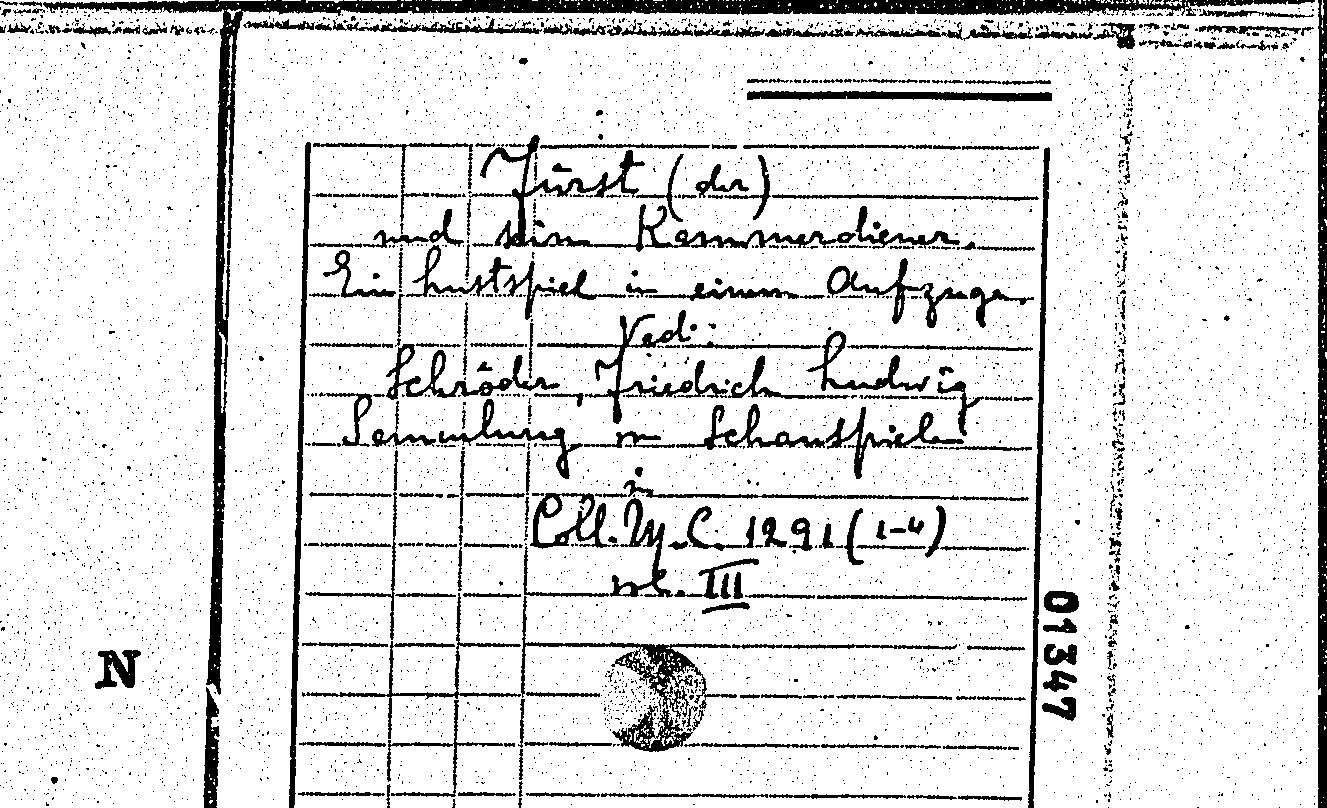 Fürst (der)
und sein Kammerdiener.
Ein Lustspiel in einem Aufzuge.
Ved::
Schröder, Friedrich Ludwig
Sammlung von Schauspielen
in
Coll. M.C. 1291 (1-4)
vol. III
01347
N